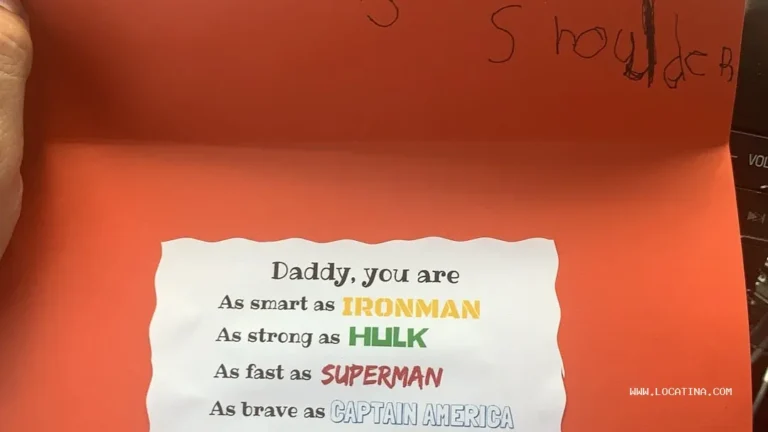 Shoulder
VOL
Daddy, you are
As smart as IRONMAN
As strong as HULK
As fast as SUPERMAN
As brave as CAPTAIN AMERICA
WWW.LOCATINA.COM